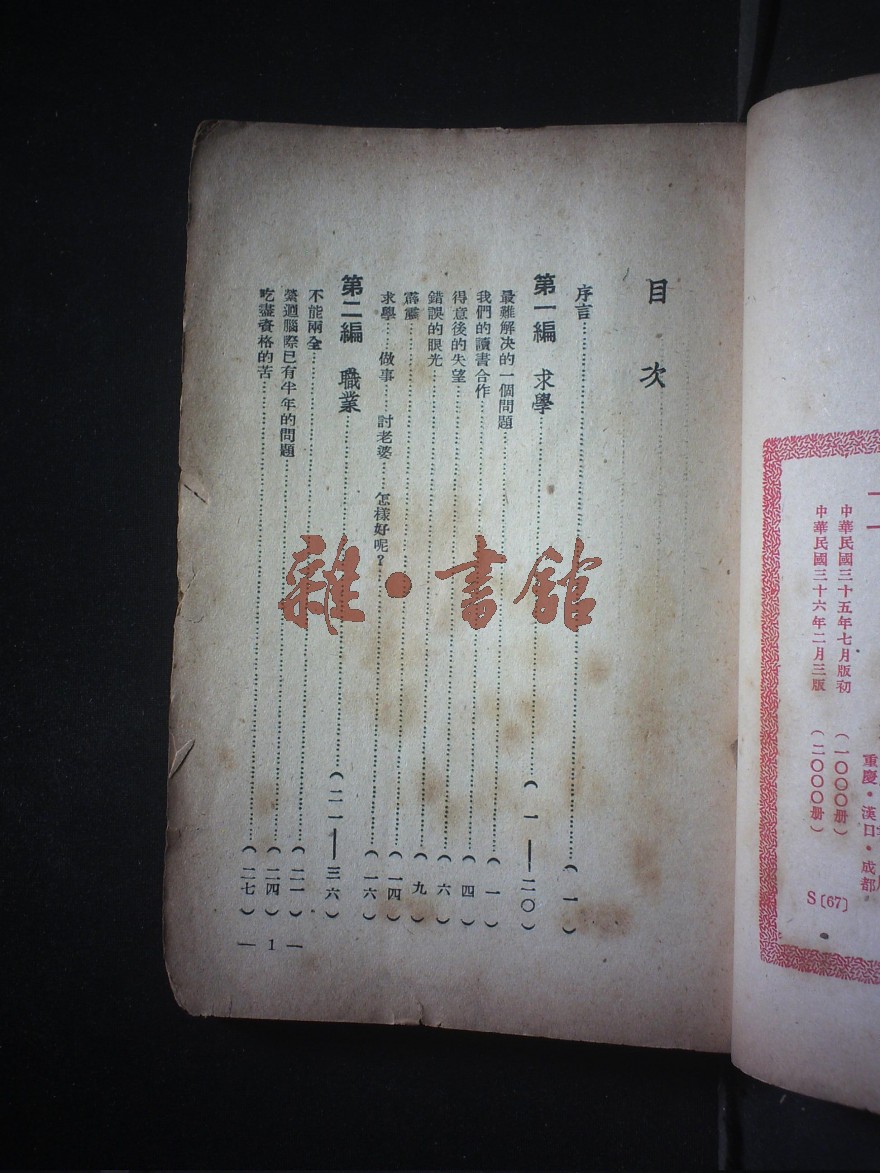 中華民國三十五年七月版初 (一〇〇〇册)
中華民國三十六年二月三版 (二〇〇〇册)
重慶•漢口•成都
S〔67〕
目次
序言……(一)
第一編 求學……(一——二〇)
最難解决的一個問題……(一)
我們的讀書合作……(四)
得意後的失望……(六)
錯誤的眼光……(九)
霹靂……(一四)
求學……做事……討老婆……怎樣好呢?……(一六)
第二編 職業……(二一——三六)
不能兩全……(二一)
縈迴腦際已有半年的問題……(二四)
吃盡資格的苦……(二七)
— 1 —
雜•書館